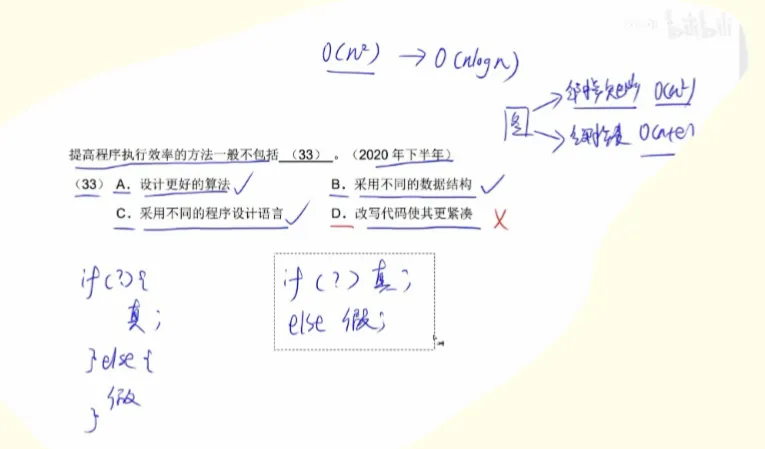 bilibili
O(n²) → O(nlogn)
图
邻接矩阵 O(n²)
邻接表 O(n+e)
提高程序执行效率的方法一般不包括 （33） 。（2020 年下半年）
（33） A．设计更好的算法 B．采用不同的数据结构
C．采用不同的程序设计语言 D．改写代码使其更紧凑
if(?){
真;
}else{
假
}
if (?) 真;
else 假;